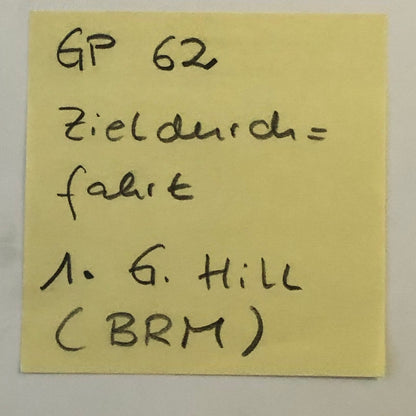 GP 62
Zieldurch=
fahrt
1. G. Hill
(BRM)